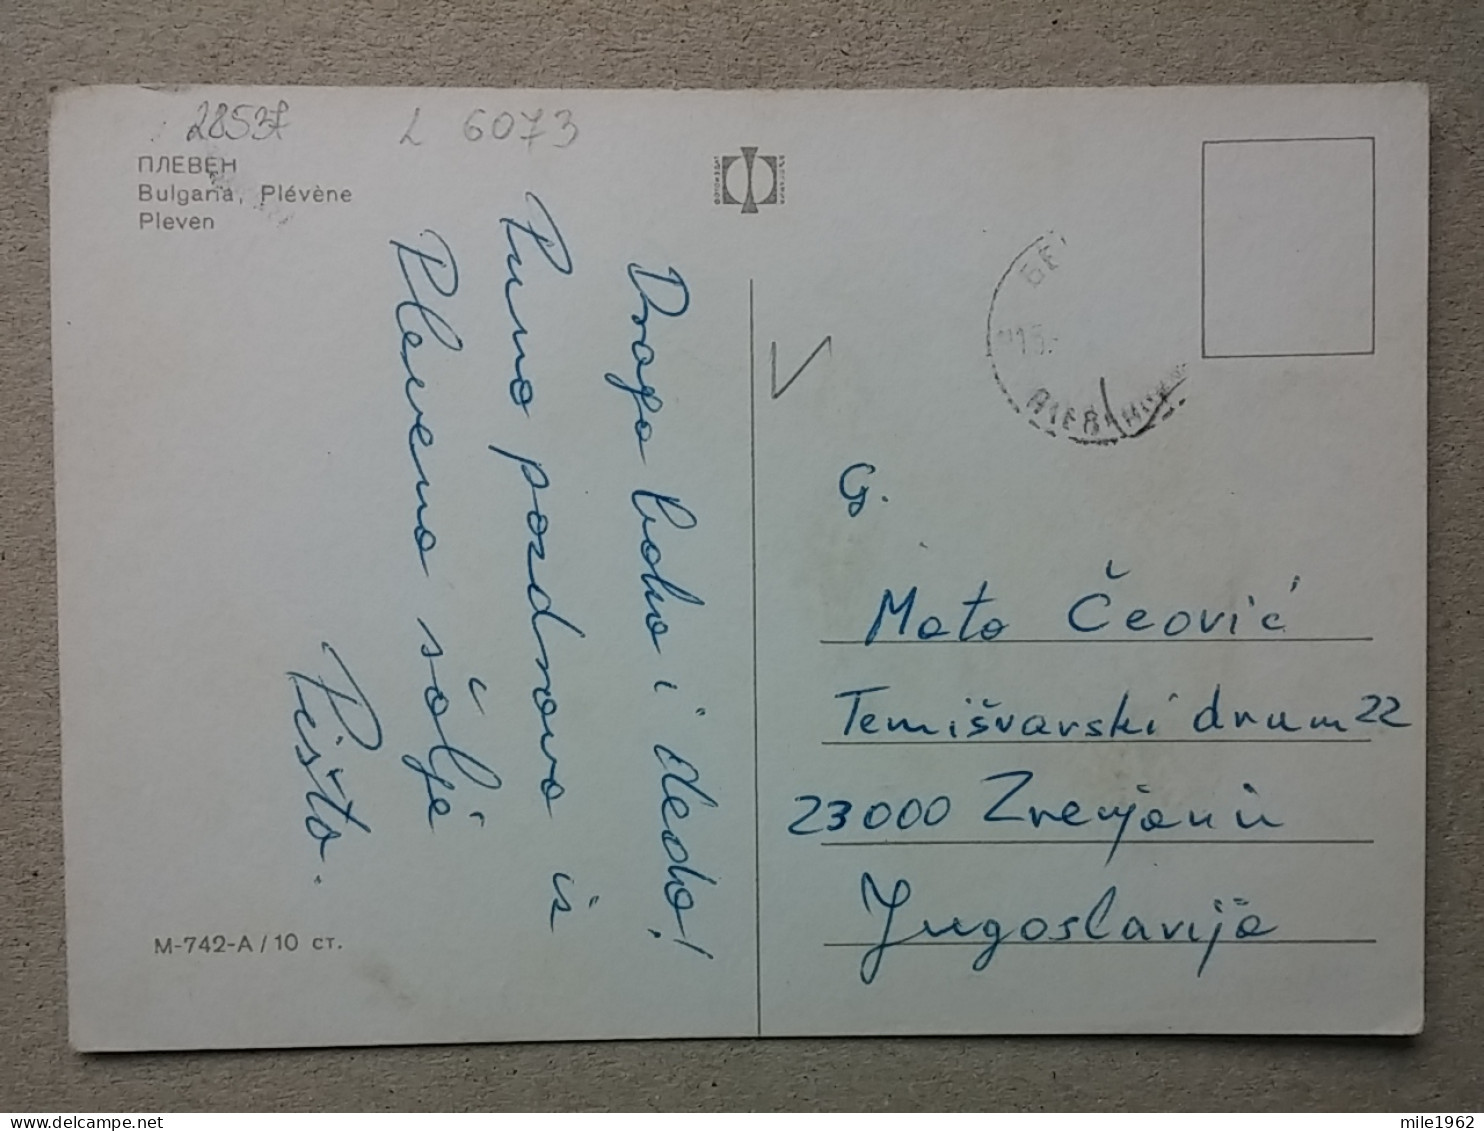 2853f
L 6073
ПЛЕВЕН
Bulgaria, Plévène
Pleven
Draga baka i deda!
Puno pozdrava iz
Plevena šalje
Pišta.
M-742-A / 10 ст.
G.
Mato Čeović
Temišvarski drum 22
23000 Zrenjanin
Jugoslavija
mile1962